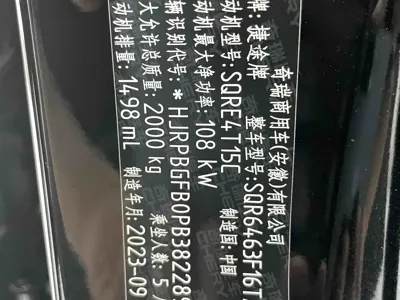 奇瑞商用车(安徽)有限公司
牌: 捷途牌 整车型号: SQR6463F16T7
动机型号: SQRE4T15C 制造国: 中国
动机最大净功率: 108 kW
辆识别代号: * HJRPBGFB0PB382289
大允许总质量: 2000 kg 乘坐人数: 5
动机排量: 1498 mL 制造年月: 2023-09